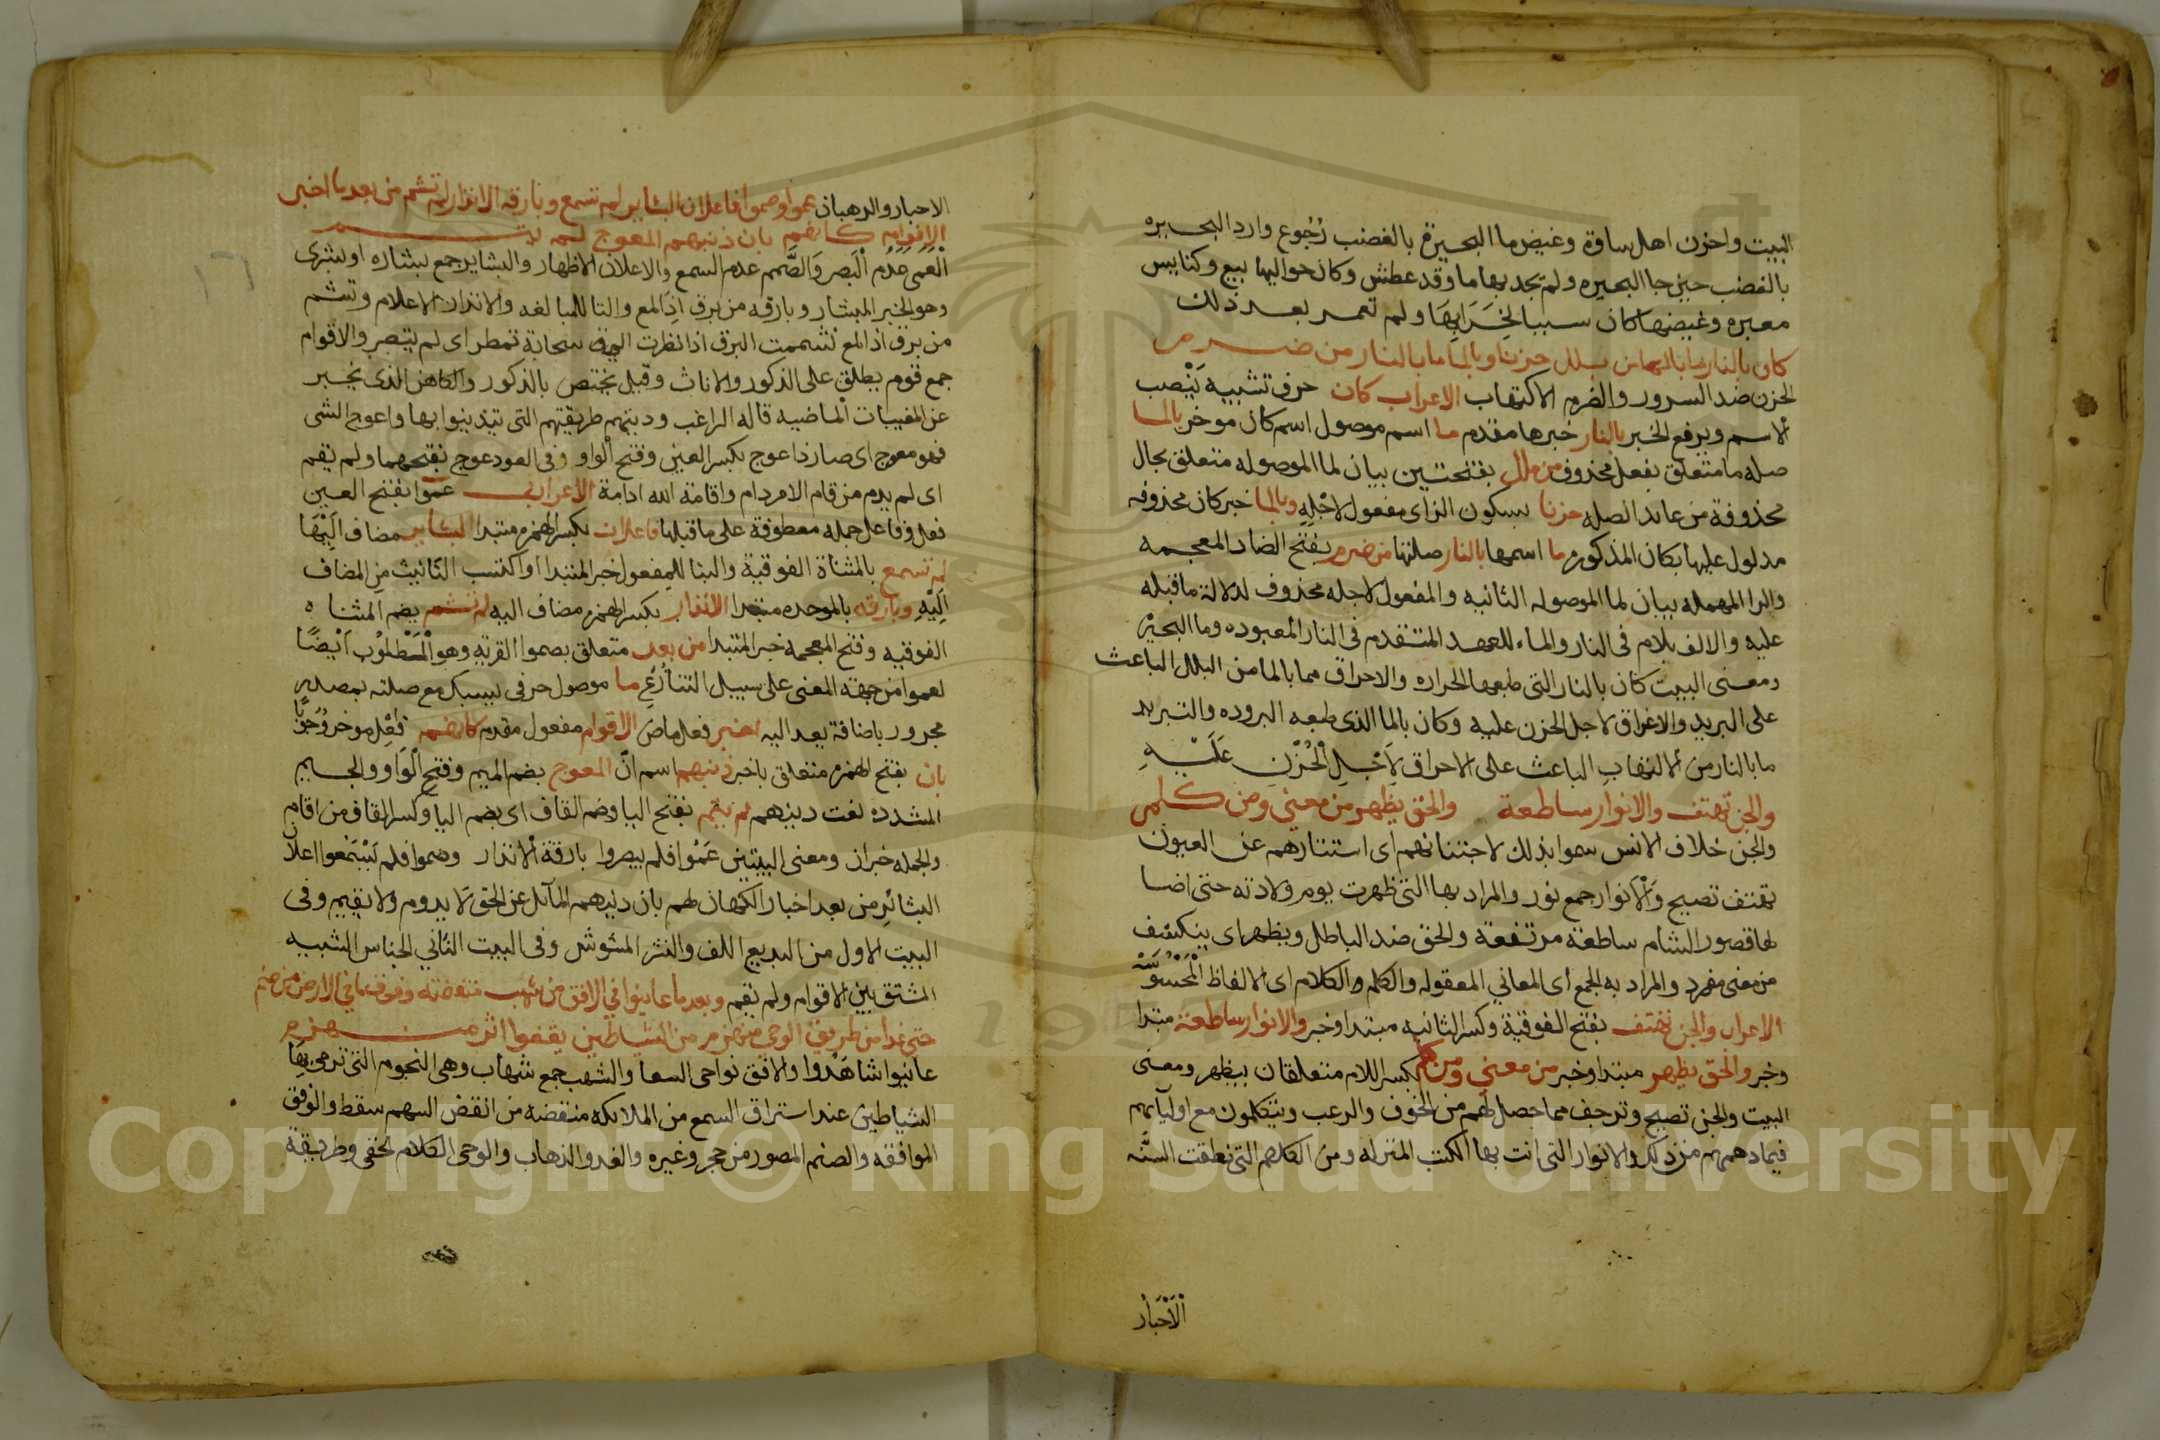 البيت واحزن اهل ساوة وغيض ما البحيرة بالغضب رُجُوع وارد البحيره
بالغضب حين جا البحيره ولم تجد بها ما وقد عطش وكان حواليها بيع وكنايس
معبره وغيضها كان سببا لخَرَابِهَا ولم تعمر بعد ذلك
كان بالنار ما بالماء من بلل حزنا وبالما ما بالنار من ضرم
الحزن ضد السرور والضرم الالتهاب الاعراب كان حرف تشبيه يَنْصب
الاسم ويرفع الخبر بالنار خبرها مقدم ما اسم موصول اسم كان موخر بالما
صله ما متعلق بفعل محذوف من بلل بفتحتين بيان لما الموصوله متعلق بحال
محذوفة من عائد الصله حزنا بسكون الزاى مفعول لاجْلِهِ وبالما خبر كان محذوفه
مدلول عليها بكان المذكوره ما اسمها بالنار صلتها من ضرم بفتح الضاد المعجمه
والرا المهمله بيان لما الموصوله الثانيه والمفعول لاجله محذوف لدلالة ما قبله
عليه والالف بلام فى النار والماء للعهد المتقدم فى النار المعبوده وما البحيرْ
ومعنى البيت كان بالنار التى طبعها الحراره والاحراق مما بالما من البلل الباعث
على البريد والاغراق لاجل الحزن عليه وكان بالما الذى طبعه البروده والتبريد
ما بالنار من الالتهابِ الباعث على الاحراق لِاَجْلِ الْحُزْنِ عَلَيْهِ
والجن تهتف والانوار ساطعة والحق يظهر من معنى ومن كلم
والجن خلاف الانس سموا بذلك لاجتنانهم اى استتارهم عن العيون
تهتف تصيح وَالْاَنوار جمع نور والمراد بها التى ظهرت يوم ولادته حتى اضا
لها قصور الشام ساطعة مرتفعة والحق ضد الباطل ويظهر اى ينكشف
من معنى مفرد والمراد به الجمع أى المعاني المعقوله والكلم والكلام اى الالفاظ الْمَحْسُوسَة
الاعراب والجن تهتف بفتح الفوقية وكسر الثانيه مبتدا وخبر والانوار ساطعة مبتدا
وخبر والحق يظهر مبتدا وخبر من معنى ومن كلم بكسر اللام متعلقان بيظهر ومعنى
البيت والجن تصيح وترجف مما حصل لهم من الخوف والرعب ويتكلمون مع اوليآئهم
فيما دهمهم من ذلك والانوار التى اتت بها الكتب المنزله ومن الكلام التى نطقت السنّه
الْاَحْبَار
الاحبار والرهبان عموا وصموا فاعلان البشاير لم تسمع وبارقه الانذار لم تشم من بعد ما اخبر
الاقوام كاهنهم بان دينهم المعوج لم يقم
الْعَمى عدُم الْبَصر وَالصَّمم عدم السمع والاعلان الاظهار والبشاير جمع بشاره او بشرى
وهو الخبر المبشار وبارقه من برق اذا لمع والتا للمبالغه والانذار الاعلام وتشم
من برق اذا لمع تشممت البرق اذا نظرت الى سحابة تمطر اى لم يبصر والاقوام
جمع قوم يطلق على الذكور والاناث وقيل يختص بالذكور والكاهن الذى يخبر
عن المغيبات الماضيه قاله الراغب ودينهم طريقتهم التى يتدينوا بها واعوج الشى
فهو معوج اى صار ذا عوج بكسر العين وفتح الواو وفى العود عوج بفتحهما ولم يقم
اى لم يدم من قام الامر دام واقامة الله ادامة الاعراب عموا بفتح العين
فعل وفاعل جمله معطوفة على ما قبلها فاعلان بكسر الهمزه مبتدا البشاير مضاف اليها
لم تسمع بالمثناة الفوقية والبنا للمفعول خبر المبتدا واكتسب التانيث من المضاف
اليه وبارقه بالموحده مبتدا الانذار بكسر الهمزه مضاف اليه لم تشم بضم المثناه
الفوقيه وفتح المعجمه خبر المبتدا من بعد متعلق بصموا القربه وهو الْمَطْلُوب اَيْضًا
لعموا من جهة المعنى على سبيل التنازُعِ ما موصول حرفى ينسبك مع صلته بمصدر
مجرور باضافة بعد اليه اخبر فعل ماض الاقوام مفعول مقدم كاهنهم فَاعِل موخر وُجُوبًا
بان بفتح الهمزه متعلق باخبر دينهم اسم انّ المعوج بضم الميم وفتح الْوَاو والجيم
المشدده نعت دينهم لم يقم بفتح اليا وضم القاف اى بضم اليا وكسر القاف من اقام
والجمله خبر ان ومعنى البيتين عَمُوا فلم يبصروا بارقة الانذار وصموا فلم يَسْمَعوا اعلان
البشائِر من بعد اخبار الكهان لهم بان دينهم المآئل عن الحق لَا يدوم ولا يقيم وفى
البيت الاول من البديع اللف والنشر المشوش وفى البيت الثاني الجناس الشبيه
المشتق بين الاقوام ولم تقم وبعد ما عاينوا في الافق من شهب منقضة وفق ما في الارض من صنم
حتى غدا من طريق الوحى منهزم من الشياطين يقفوا اثر منهزم
عاينوا شاهَدُوا والافق نواحى السما والشهب جمع شهاب وهى النجوم التى ترمى بِهَا
الشياطين عند استراق السمع من الملائكه منقضه من انقض السهم سقط والوفق
الموافقه والصنم المصور من حجر وغيره والغدو الذهاب والوحى الكلام الخفى وطريقة